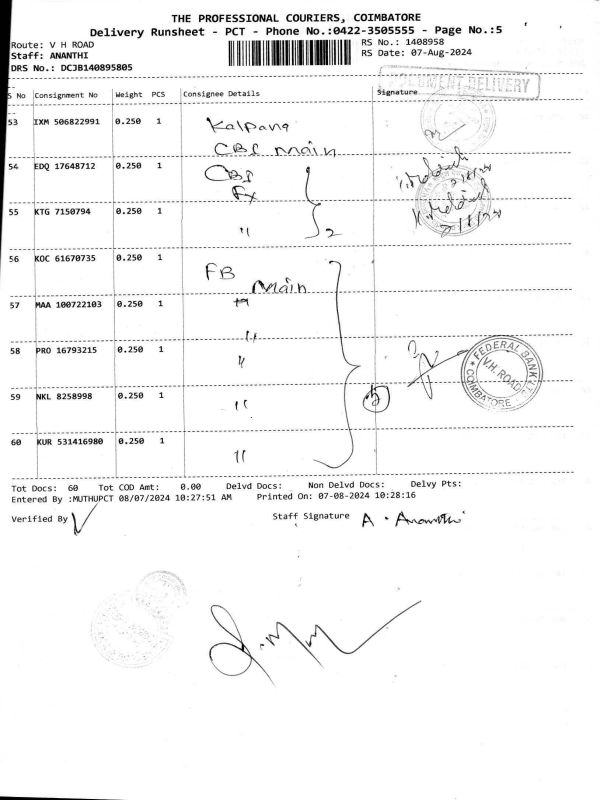 THE PROFESSIONAL COURIERS, COIMBATORE
Delivery Runsheet - PCT - Phone No.:0422-3505555 - Page No.:5
Route: V H ROAD
RS No.: 1408958
Staff: ANANTHI
RS Date: 07-Aug-2024
DRS No.: DCJB140895805
DOCUMENT DELIVERY
S No Consignment No Weight PCS Consignee Details Signature
53 IXM 506822991 0.250 1 Kalpana
CBI Main
54 EDQ 17648712 0.250 1 CBI
Fx
55 KTG 7150794 0.250 1 " 2
56 KOC 61670735 0.250 1 FB
Main
57 MAA 100722103 0.250 1 "
"
58 PRO 16793215 0.250 1 "
FEDERAL BANK
V.H. ROAD
COIMBATORE
59 NKL 8258998 0.250 1 " 5
60 KUR 531416980 0.250 1 "
Tot Docs: 60 Tot COD Amt: 0.00 Delvd Docs: Non Delvd Docs: Delvy Pts:
Entered By :MUTHUPCT 08/07/2024 10:27:51 AM Printed On: 07-08-2024 10:28:16
Verified By Staff Signature A. Ananthi